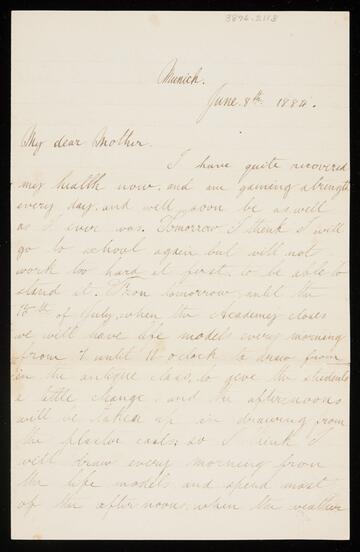 3896.2118
Munich.
June. 8th. 1884.
My dear Mother.
I have quite recovered
my health now, and am gaining strength
every day, and will soon be as well
as I ever was. Tomorrow I think I will
go to school again but will not
work too hard at first, to be able to
stand it. From tomorrow, until the
of July, when the Academy closes
we will have life models every morning
from 7 until o'clock to draw from
in the antique class, to give the students
a little change. and the afternoons
will be taken up in drawing from
the plaster casts; so I think I
will draw every morning from
the life models and spend most
of the afternoon, when the weather